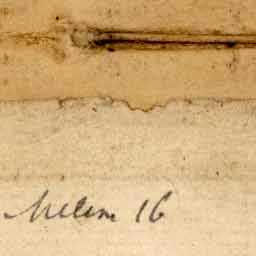 Melem 16